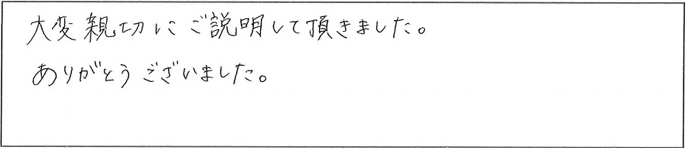 大変親切にご説明して頂きました。
ありがとうございました。